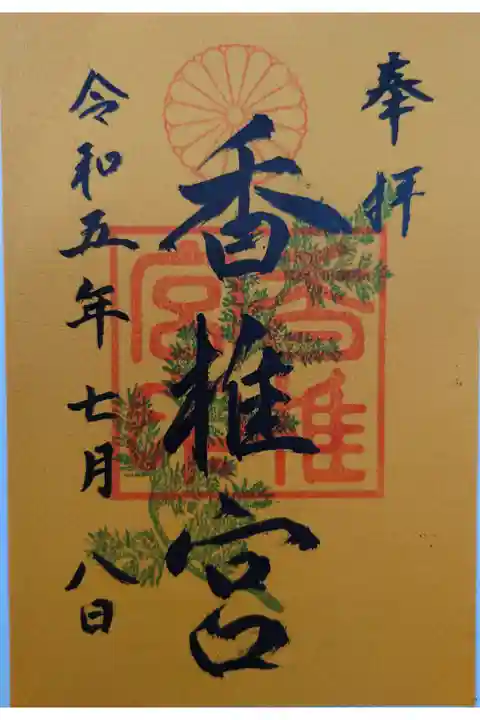 奉拝
香椎宮
令和五年七月八日
香椎宮印